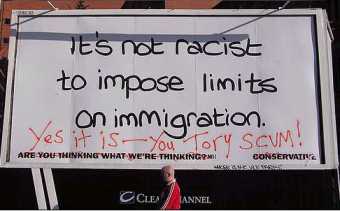 It's not racist
to impose limits
on immigration.
Yes it is — You Tory SCUM!
ARE YOU THINKING WHAT WE'RE THINKING?
CONSERVATIVE
CLEAR CHANNEL